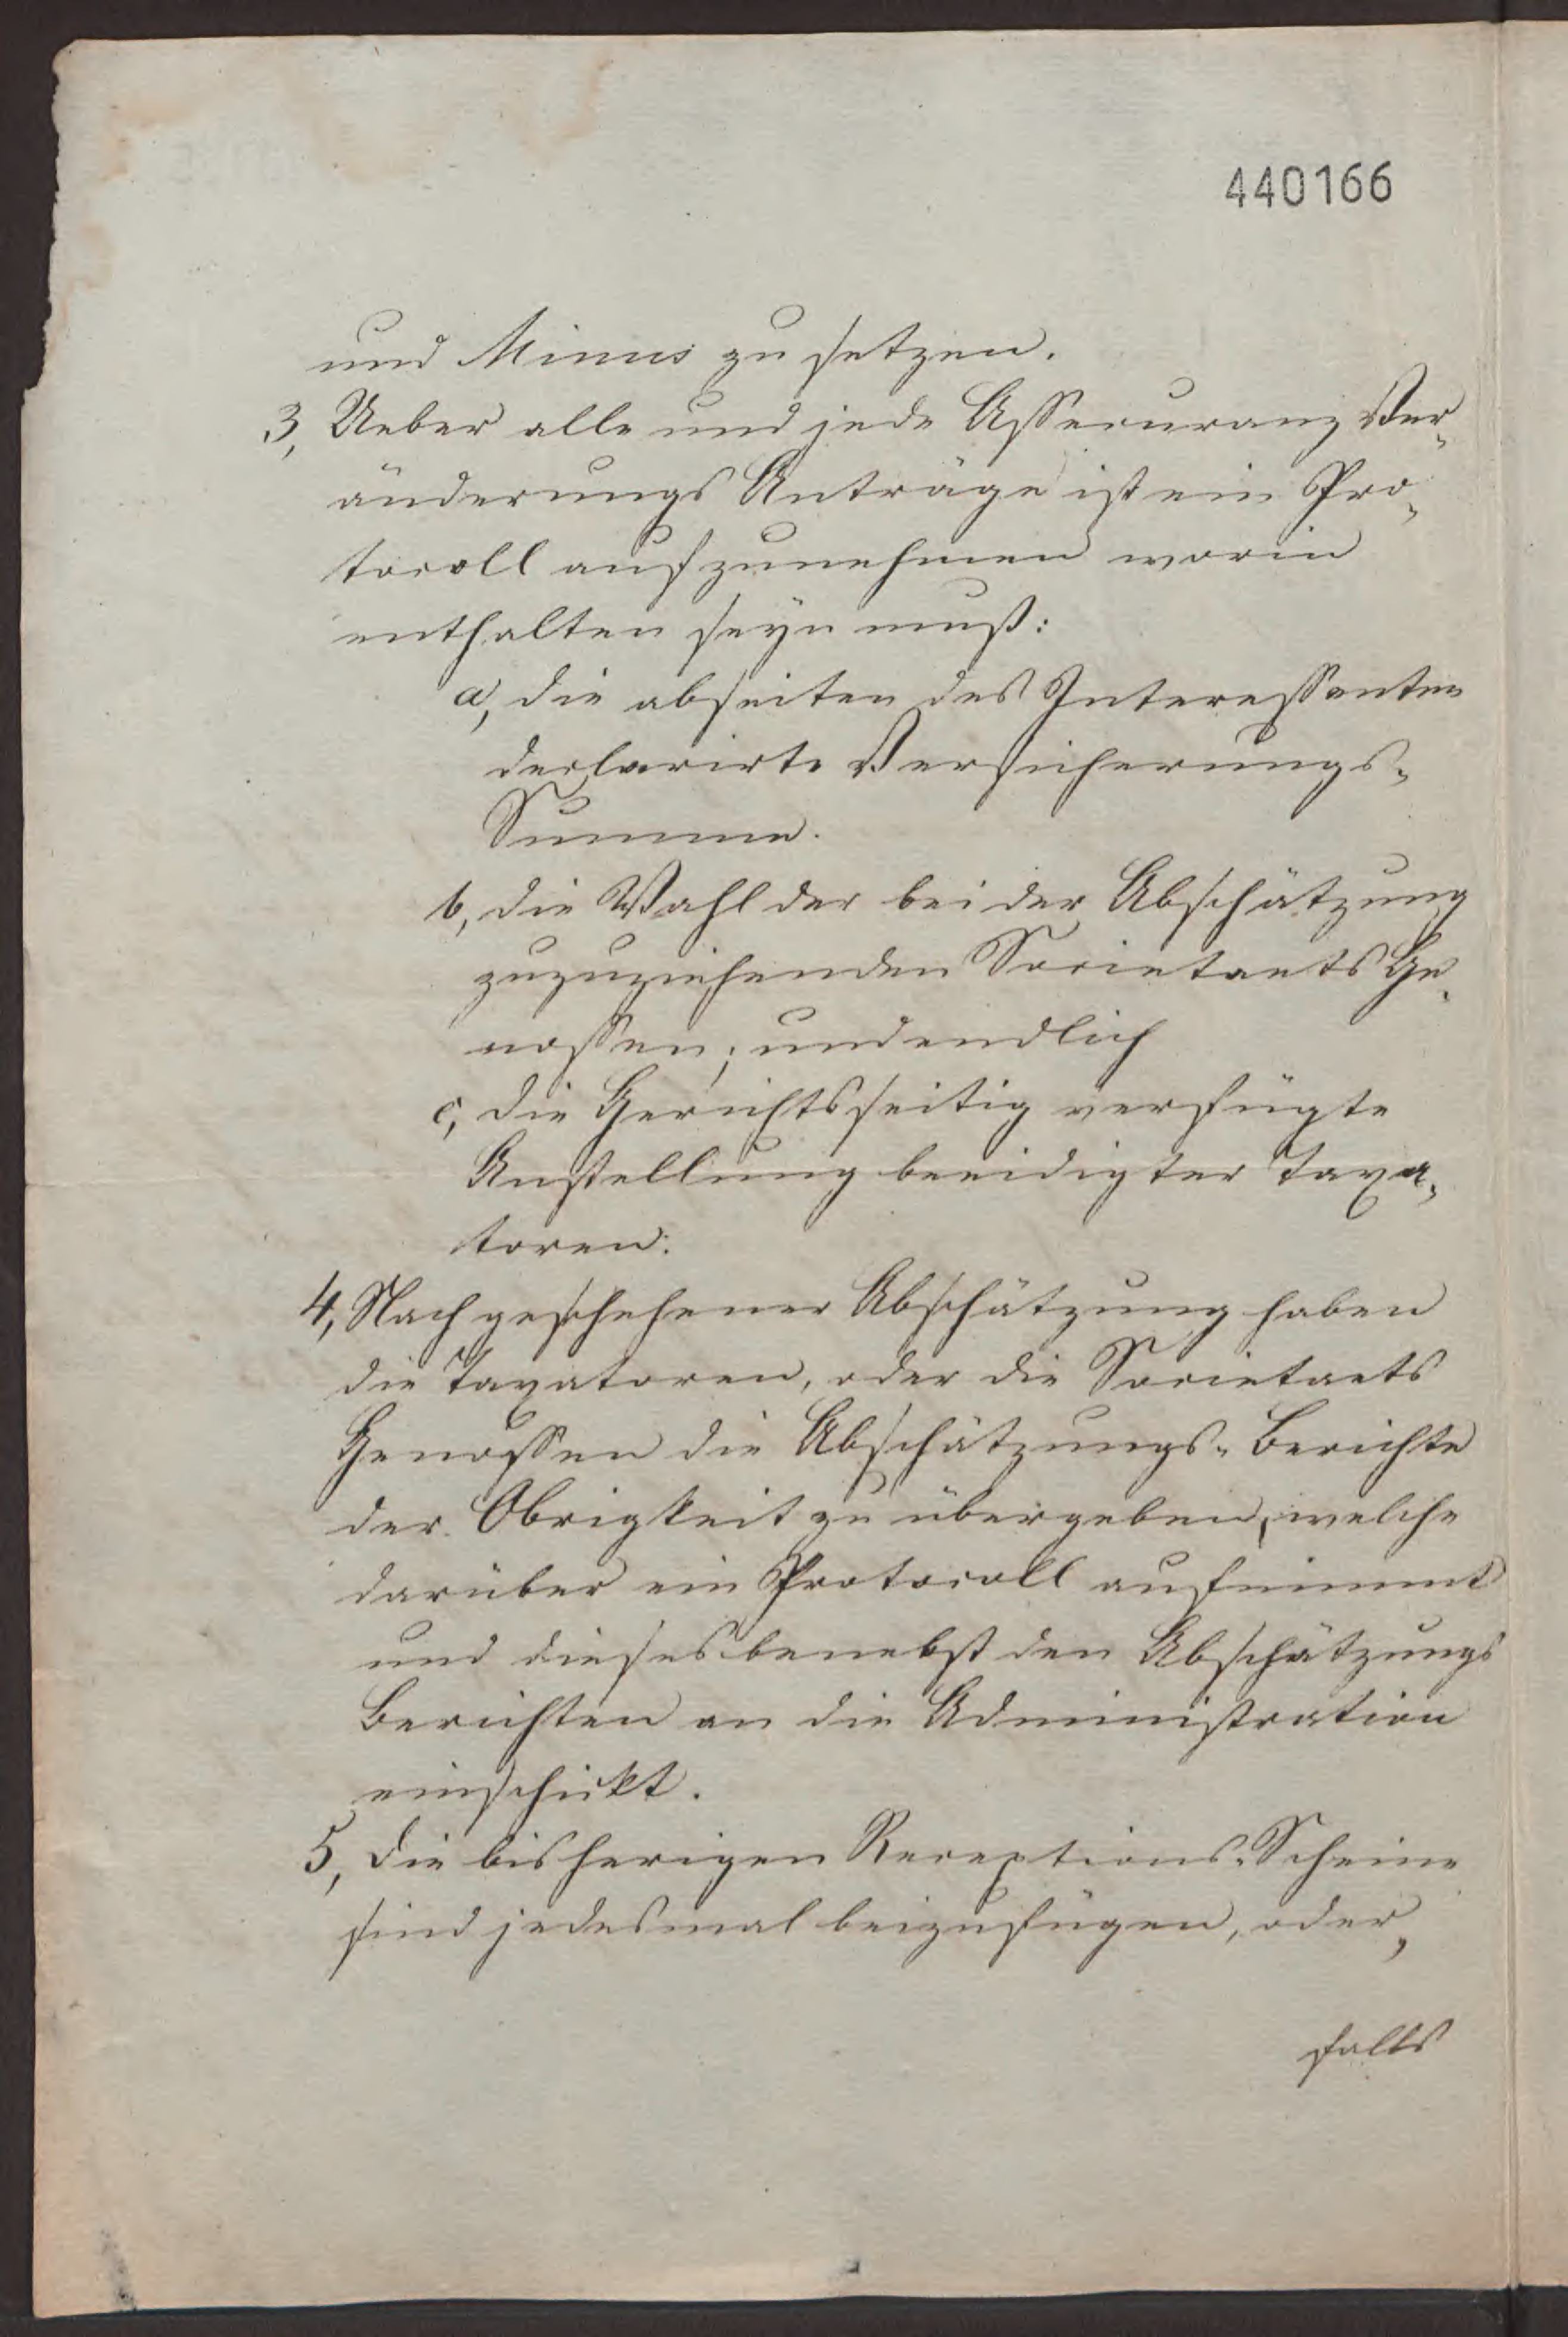 440166
und Minus zu setzen.
3, Ueber alle und jede Assecuranz Ver„
änderungs Anträge ist ein Pro„
tocoll aufzunehmen worin
enthalten seyn muß:
a, die abseiten des Interessenten
declarirte Versicherungs„
Summe.
b, die Wahl der bei der Abschätzung
zuzuziehenden Societaets Ge„
nossen; und endlich
c, die Gerichtsseitig verfügte
Anstellung beeidigter Taxa„
toren.
4, Nach geschehener Abschätzung haben
die Taxatoren, oder die Societaets
Genossen die Abschätzungs„Berichte
der Obrigkeit zu übergeben, welche
darüber ein Protocoll aufnimmt
und dieses benebst den Abschätzungs
Berichten an die Administration
einschickt.
5, Die bisherigen Receptions„Scheine
sind jedesmal beizufügen, oder,
falls